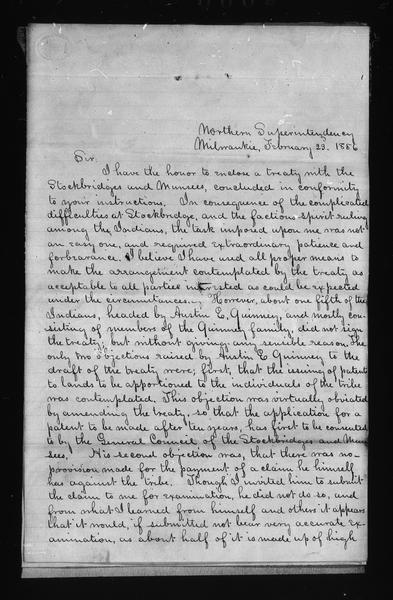 Northern Superintendency
Milwaukie, February 23. 1856
Sir,
I have the honor to enclose a treaty with the
Stockbridges and Munsees, concluded in conformity
to your instructions. In consequence of the complicated
difficulties at Stockbridge, and the factious spirit ruling
among the Indians, the task imposed upon me was not
an easy one, and required extraordinary patience and
forbearance. I believe I have used all proper means to
make the arrangement contemplated by the treaty as
acceptable to all parties interested as could be expected
under the circumstances. However, about one fifth of the
Indians, headed by Austin E. Quinney, and mostly con-
sisting of members of the Quinney family, did not sign
the treaty; but without giving any sensible reason. The
only two objections raised by Austin E Quinney to the
draft of the treaty were; first, that the issuing of patents
to lands to be apportioned to the individuals of the tribe
was contemplated. This objection was virtually obviated
by amending the treaty, so that the application for a
patent to be made after ten years, has first to be consented
to by the General Council of the Stockbridges and Mun-
sees. His second objection was, that there was no
provision made for the payment of a claim he himself
has against the tribe. Though I invited him to submit
the claim to me for examination, he did not do so, and
from what I learned from himself and others it appears
that it would, if submitted not bear very accurate ex-
amination, as about half of it is made up of high